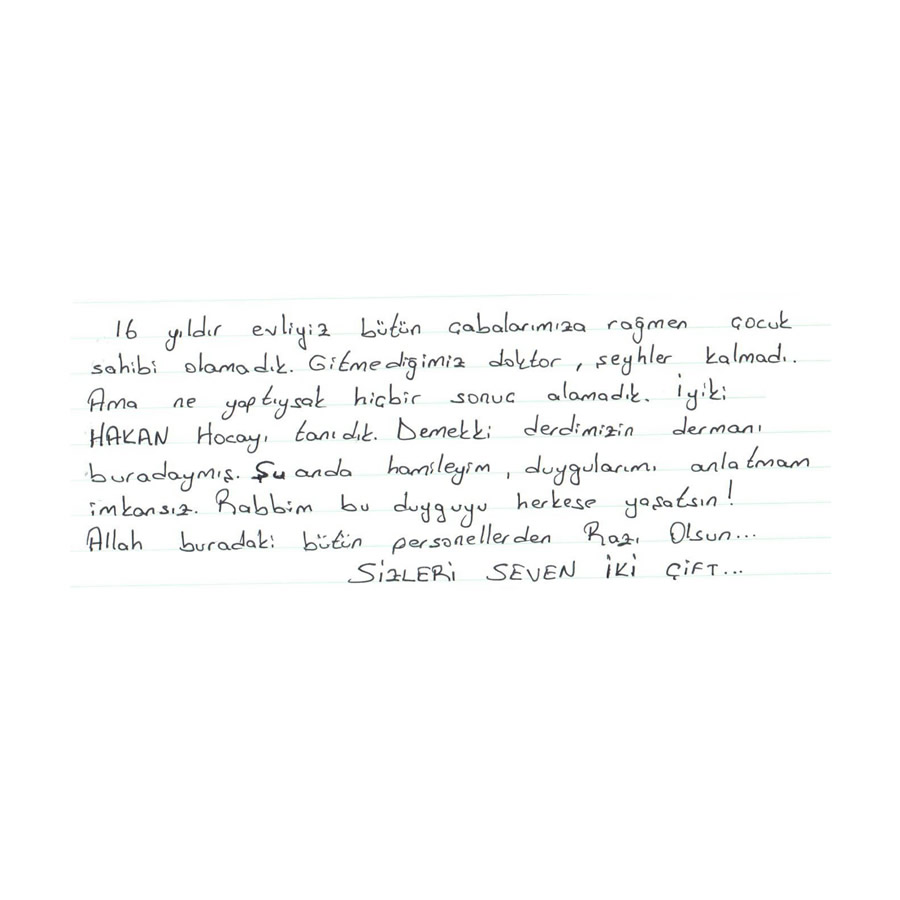 16 yıldır evliyiz bütün çabalarımıza rağmen çocuk
sahibi olamadık. Gitmediğimiz doktor, şeyhler kalmadı..
Ama ne yaptıysak hiçbir sonuç alamadık. İyiki
HAKAN Hocayı tanıdık. Demekki derdimizin dermanı
buradaymış. Şu anda hamileyim, duygularımı anlatmam
imkansız. Rabbim bu duyguyu herkese yaşatsın!
Allah buradaki bütün personellerden Razı Olsun...
SİZLERİ SEVEN İKİ ÇİFT...